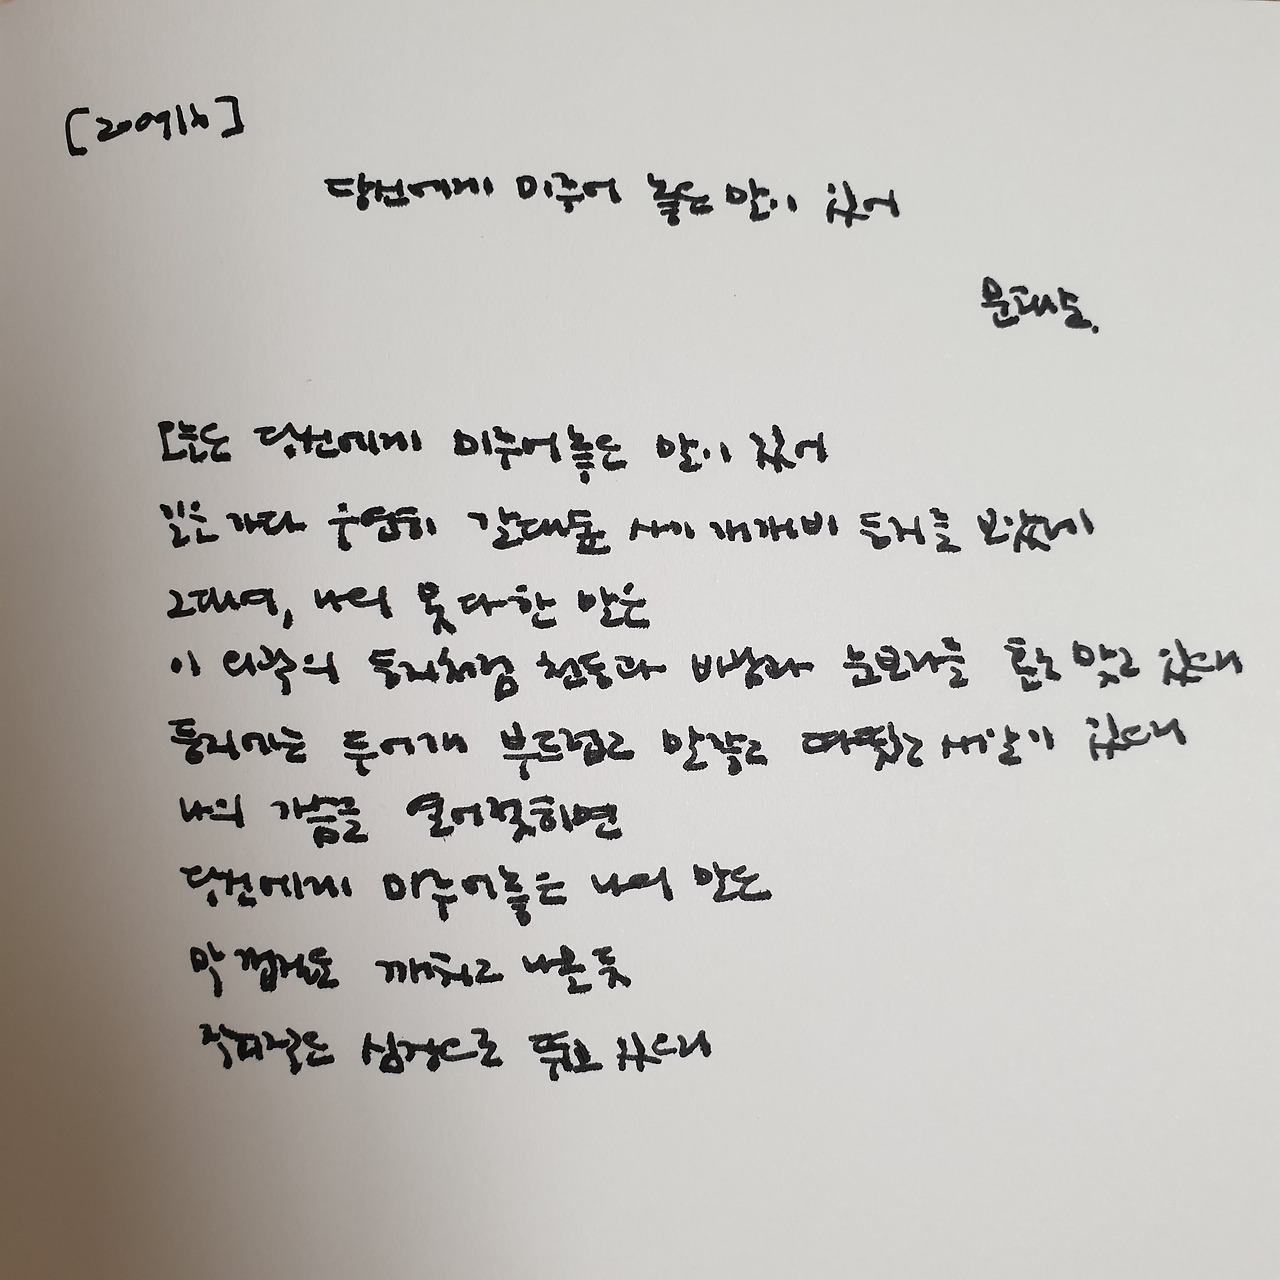 [209일차]
당신에게 미루어 놓은 말이 있어
문태준.
오늘은 당신에게 미루어놓은 말이 있어
길을 가다 우연히 갈대숲 사이 개개비 둥지를 보았네
그대여, 나의 못다한 말은
이 외곽의 둥지처럼 천둥과 바람과 눈보라를 홀로 맞고 있으니
둥지에는 두어개 부드럽고 말갛고 따뜻한 새알이 있으니
나의 가슴을 열어젖히면
당신에게 미루어놓은 나의 말은
막 껍질을 깨치고 나올듯
작디작은 심장으로 뛰고 있으니